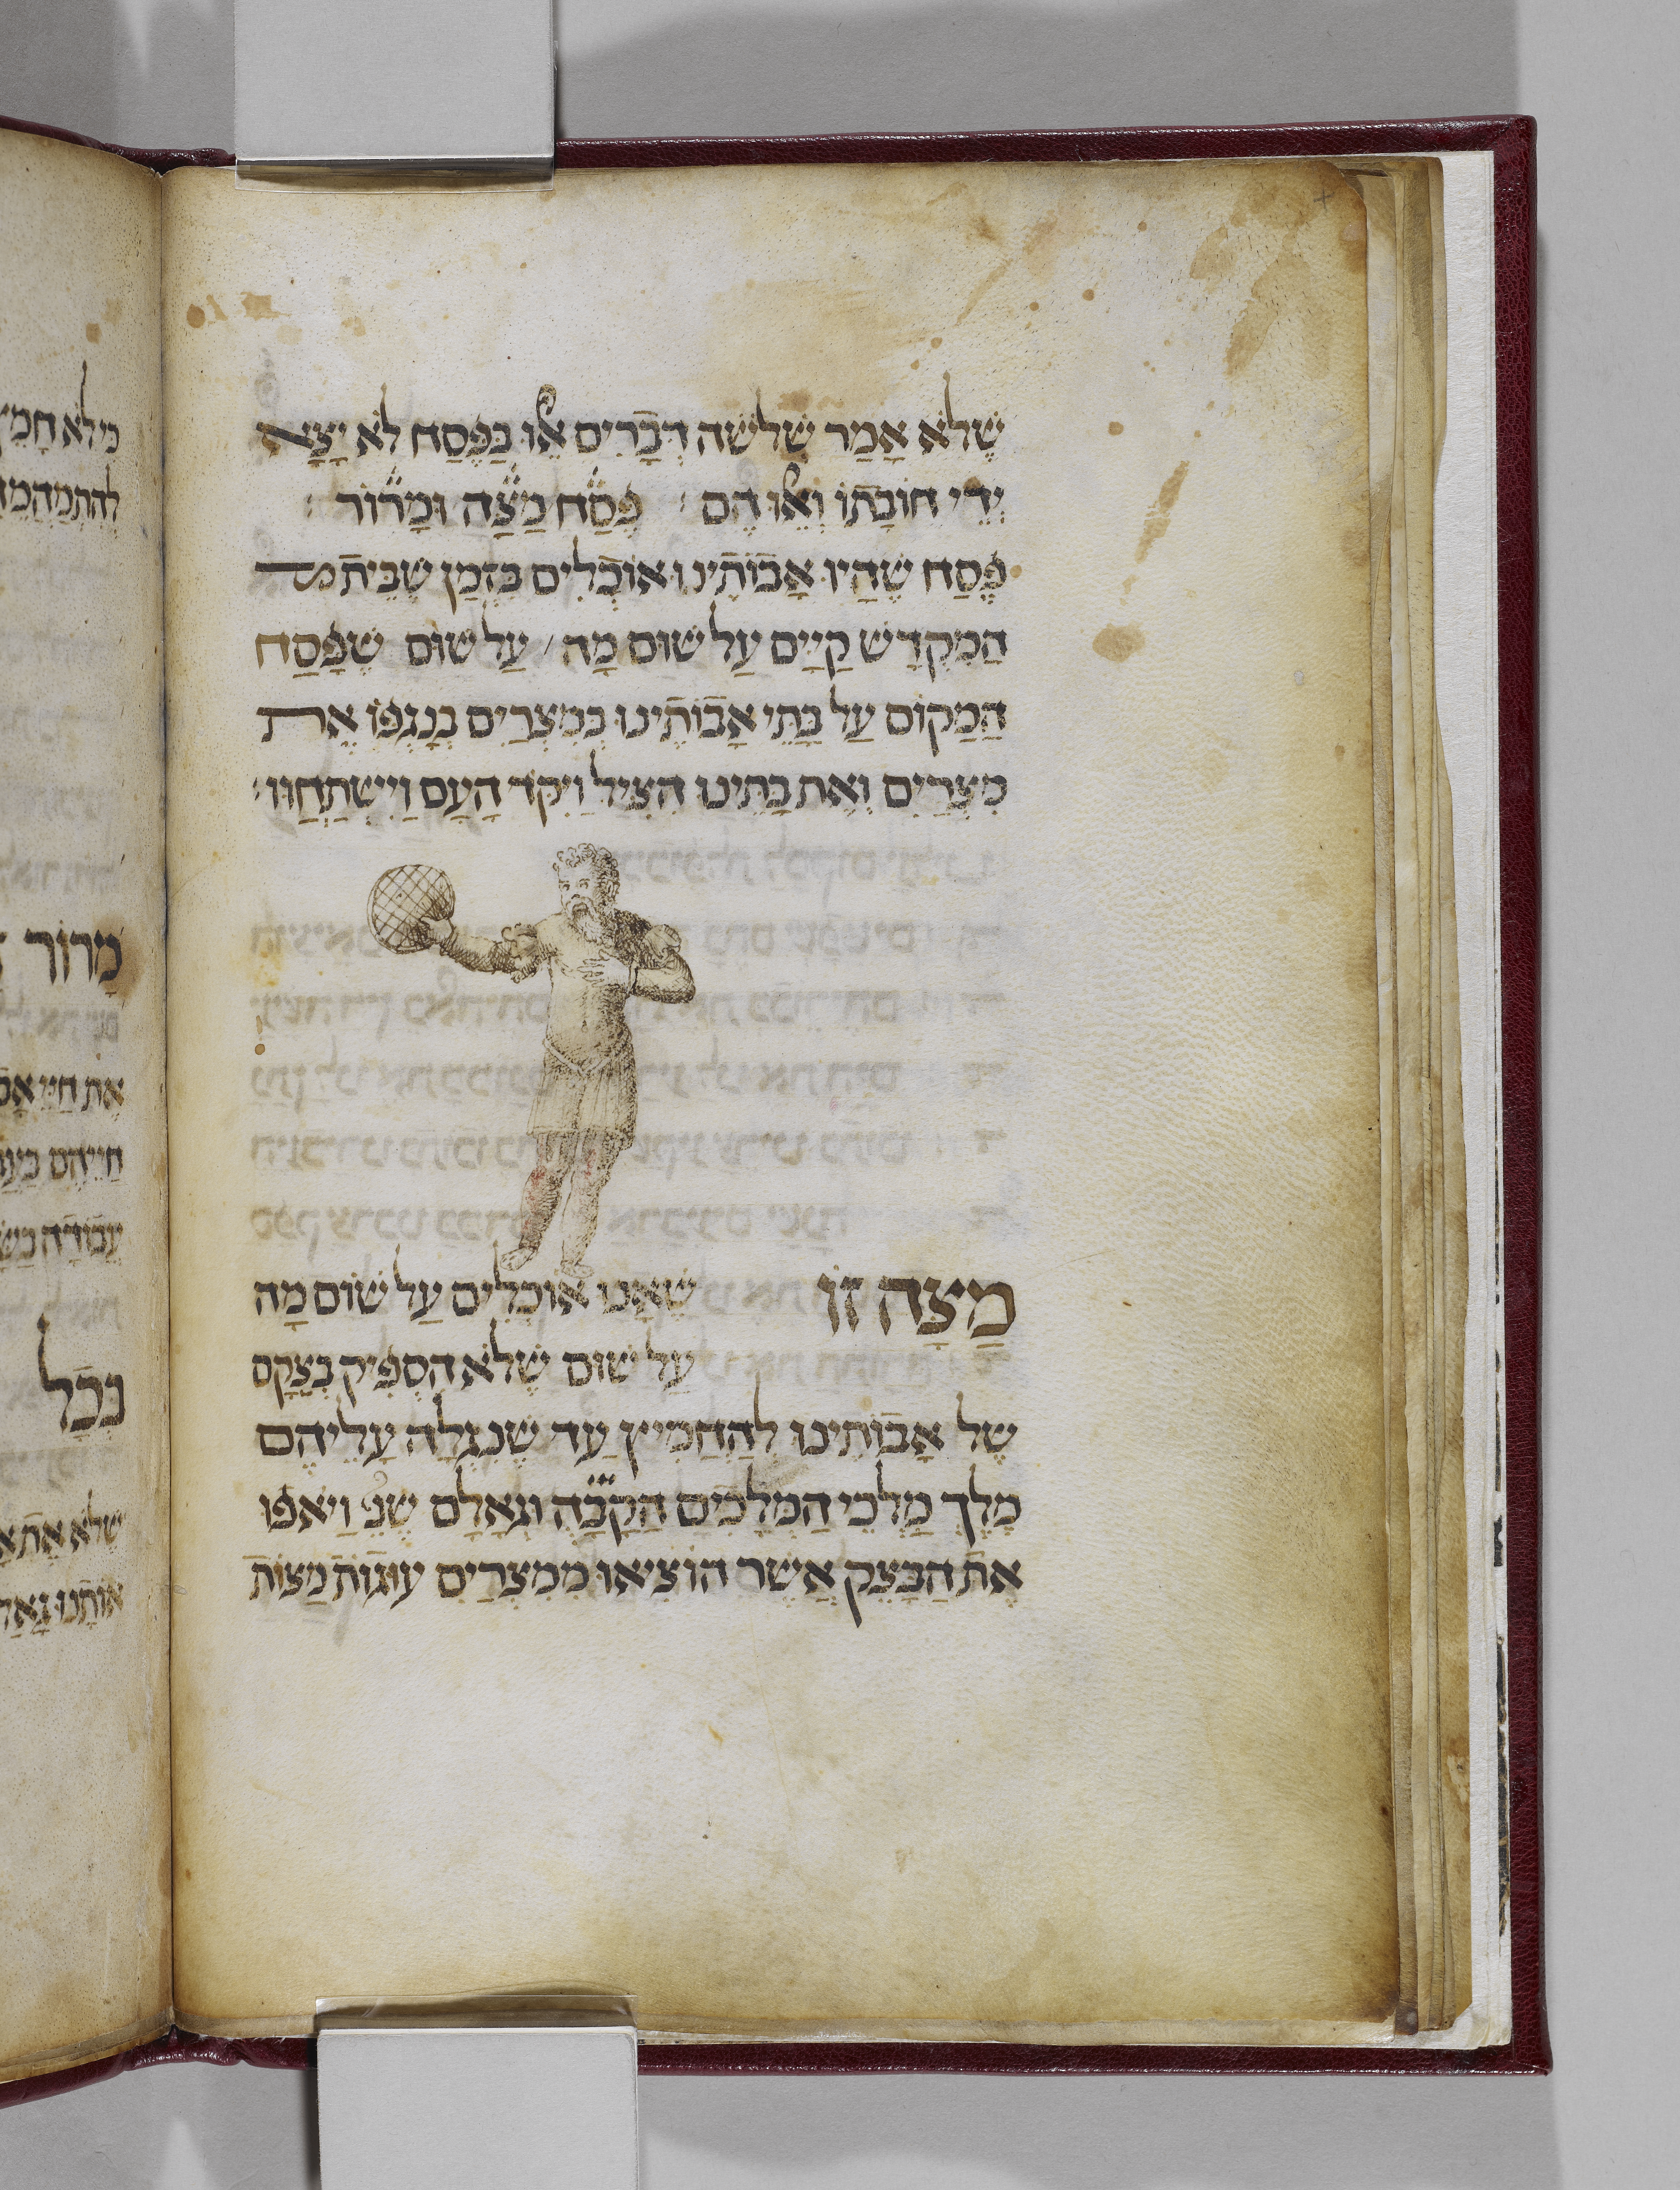 שֶׁלֹּא אָמַר שְׁלֹשָׁה דְּבָרִים אֵלּוּ בַּפֶּסַח לֹא יָצָא
יְדֵי חוֹבָתוֹ וְאֵלּוּ הֶם פֶּסַח מַצָּה וּמָרוֹר
פֶּסַח שֶׁהָיוּ אֲבוֹתֵינוּ אוֹכְלִים בִּזְמַן שֶׁבֵּית
הַמִּקְדָּשׁ קַיָּים עַל שׁוּם מָה עַל שׁוּם שֶׁפָּסַח
הַמָּקוֹם עַל בָּתֵּי אֲבוֹתֵינוּ בְּמִצְרַיִם בְּנָגְפּוֹ אֶת
מִצְרַיִם וְאֶת בָּתֵּינוּ הִצִּיל וַיִּקֹּד הָעָם וַיִּשְׁתַּחֲווּ
מַצָּה זוֹ שֶׁאָנוּ אוֹכְלִים עַל שׁוּם מָה
עַל שׁוּם שֶׁלֹּא הִסְפִּיק בְּצֵקָם
שֶׁל אֲבוֹתֵינוּ לְהַחְמִיץ עַד שֶׁנִּגְלָה עֲלֵיהֶם
מֶלֶךְ מַלְכֵי הַמְּלָכִים הַקָּבָּ״ה וּגְאָלָם שֶׁנֶּ׳ וַיֹּאפוּ
אֶת הַבָּצֵק אֲשֶׁר הוֹצִיאוּ מִמִּצְרַיִם עוּגוֹת מַצּוֹת
מָרוֹר
אֶת חַיֵּי
חַיֵּיהֶם
עֲבוֹדָה
בְּכָל
שֶׁלֹּא אֶת
אוֹתָנוּ